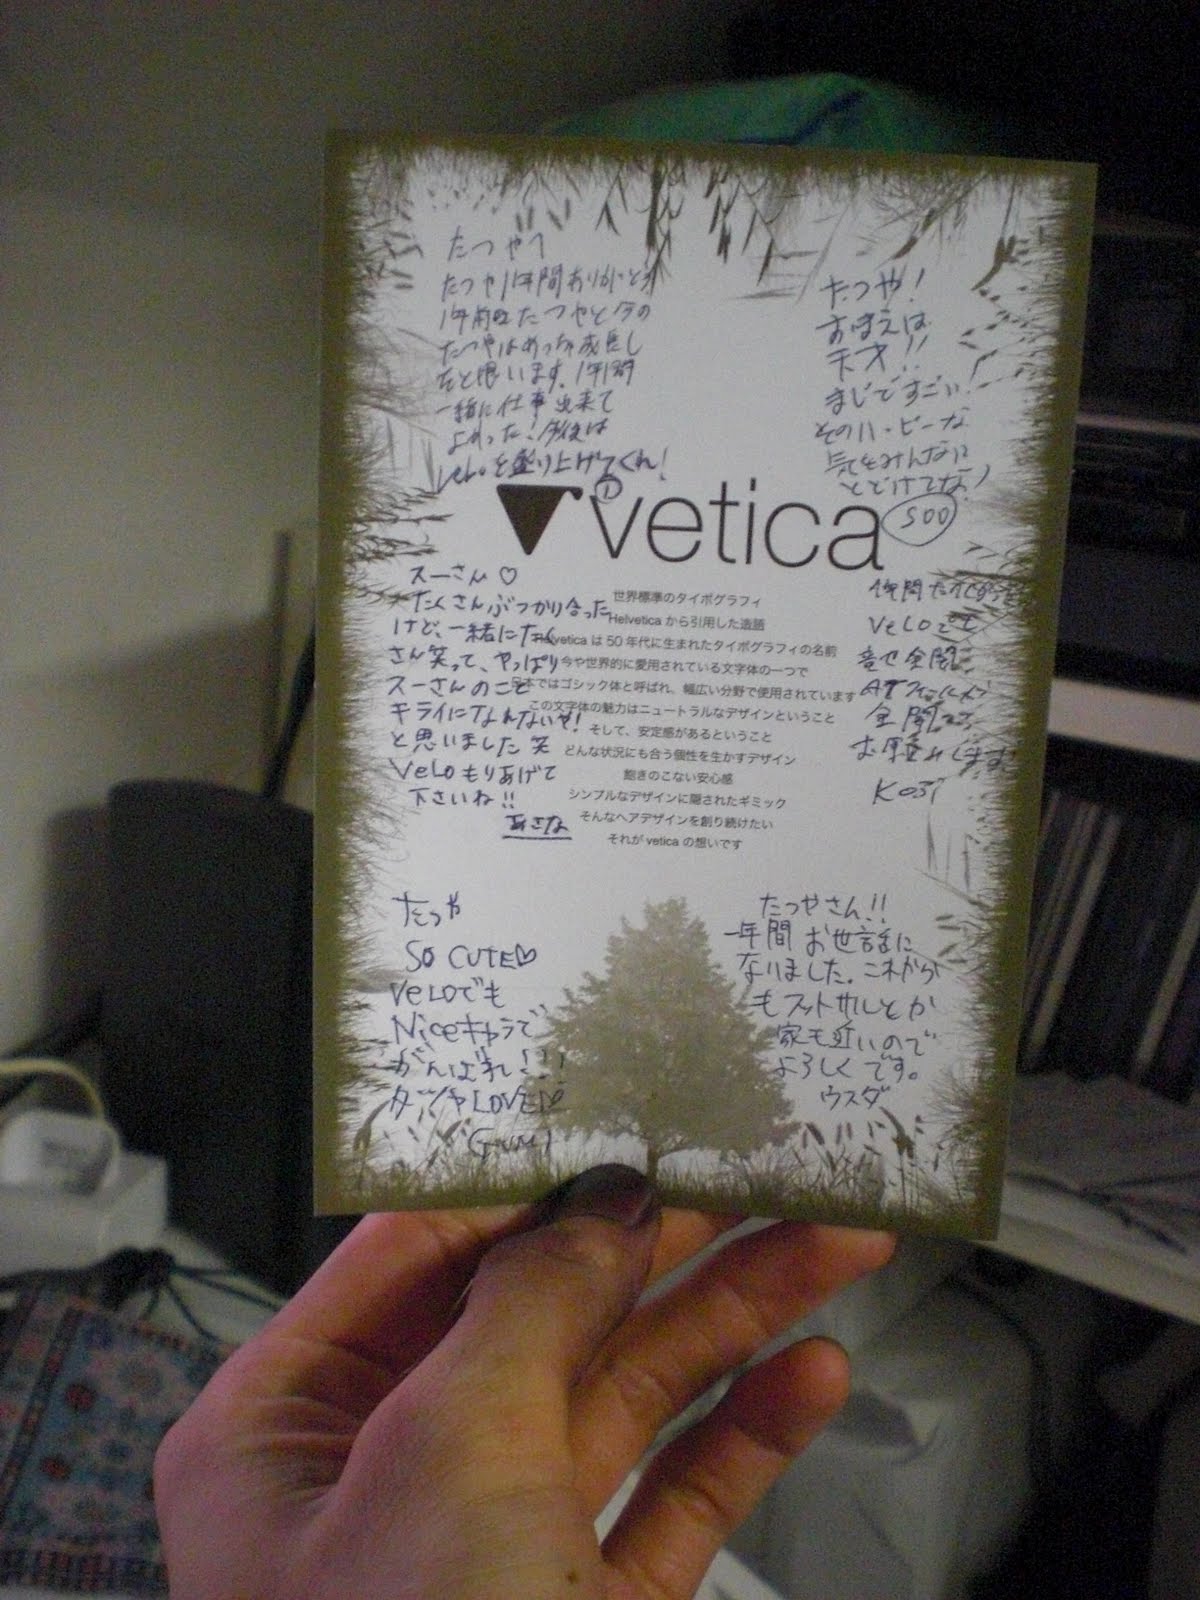 たつやへ
たつや1年間ありがとう
1年前のたつやと今の
たつやはめっちゃ成長し
たと思います。1年間
一緒に仕事出来て
よかった!今後は
veloを盛り上げてくれ!
たつや!
おまえは
天才!!
まじですごい!
そのハッピーな
気をみんなに
とどけてな!
SOO
vetica
世界標準のタイポグラフィ
Helveticaから引用した造語
Helveticaは50年代に生まれたタイポグラフィの名前
今や世界的に愛用されている文字体の一つで
日本ではゴシック体と呼ばれ、幅広い分野で使用されています
この文字体の魅力はニュートラルなデザインということ
そして、安定感があるということ
どんな状況にも合う個性を生かすデザイン
飽きのこない安心感
シンプルなデザインに隠されたギミック
そんなヘアデザインを創り続けたい
それがveticaの想いです
スーさん♡
たくさんぶつかり合った
けど、一緒にたく
さん笑って、やっぱり
スーさんのこと
キライになれないや!
と思いました 笑
Veloもりあげて
下さいね!!
あさな
1年間
VeLOでも
全開
全開で
お願いします
Koji
たつや
SO CUTE♡
VeLOでも
Niceキャラで
がんばれ!!!
タツヤLOVE♡
GUMI
たつやさん!!
一年間お世話に
なりました。これから
もフットサルとか
家も近いので
よろしくです。
ウスダ